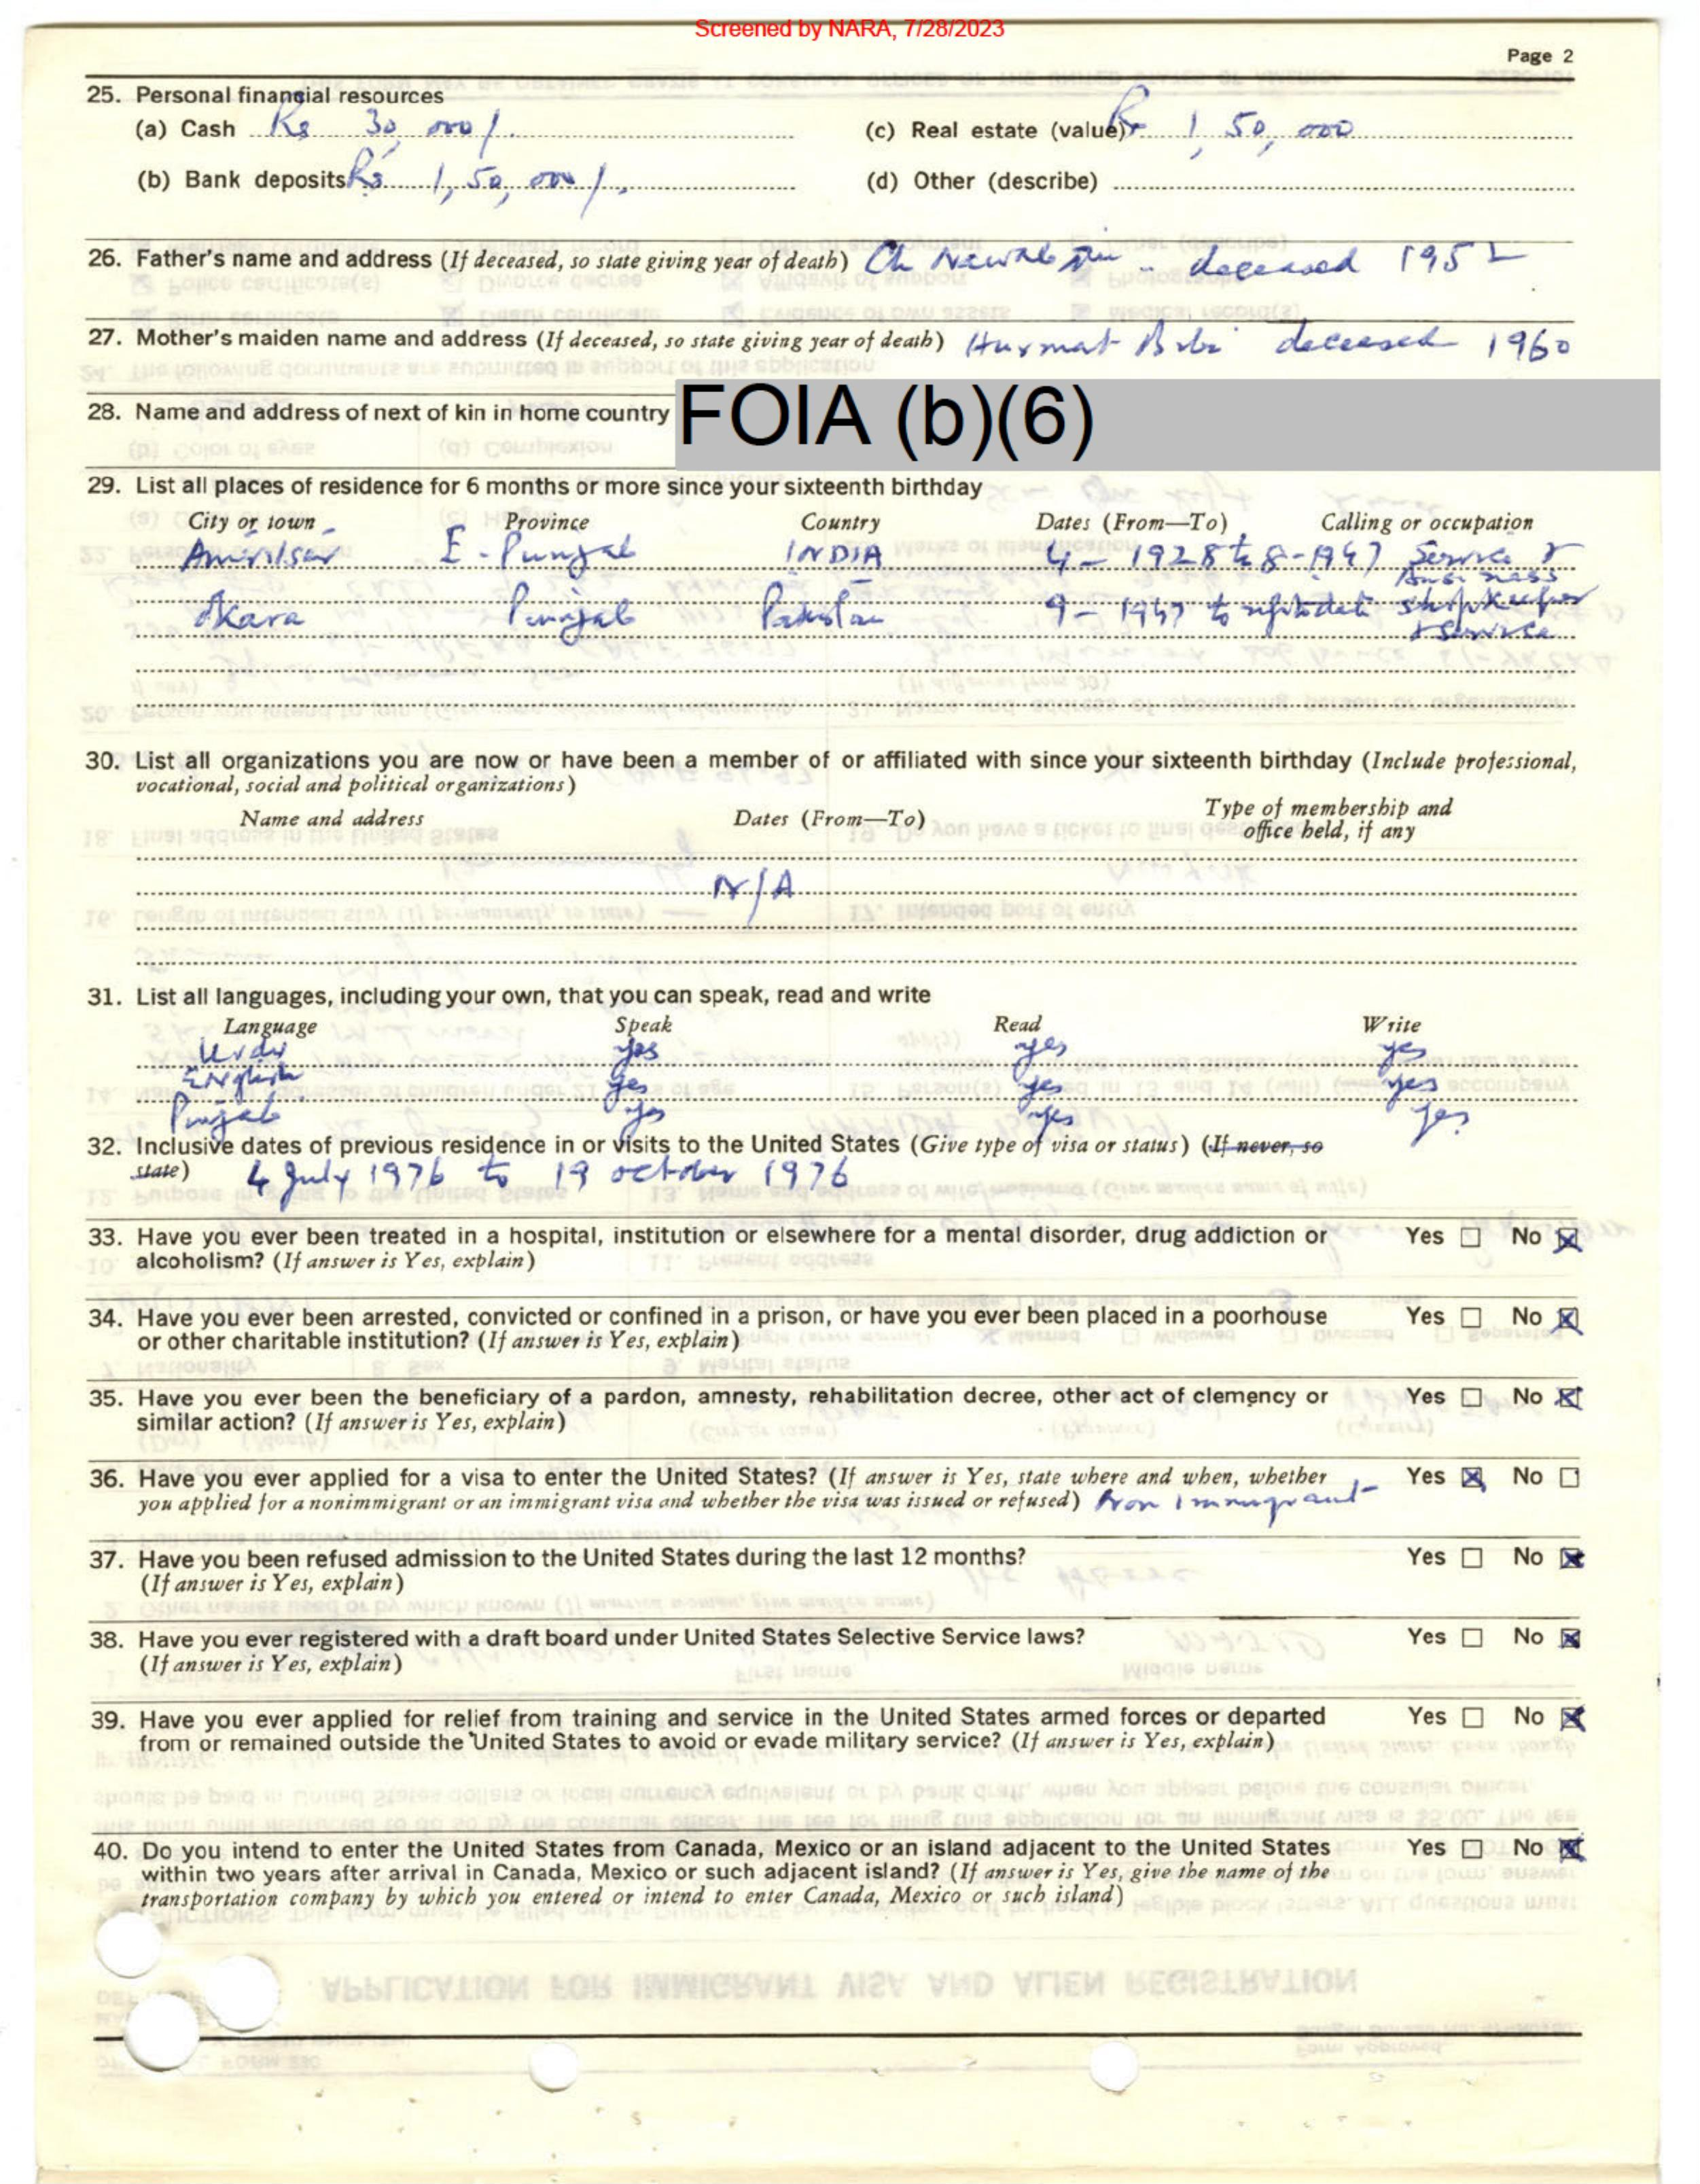 Screened by NARA, 7/28/2023
Page 2
25. Personal financial resources
(a) Cash Rs 30,000/. (c) Real estate (value) Rs 1,50,000
(b) Bank deposits Rs 1,50,000/. (d) Other (describe)
26. Father's name and address (If deceased, so state giving year of death) Ch Nawab Din - deceased 1952
27. Mother's maiden name and address (If deceased, so state giving year of death) Hurmat Bibi deceased 1960
28. Name and address of next of kin in home country FOIA (b)(6)
29. List all places of residence for 6 months or more since your sixteenth birthday
City or town Province Country Dates (From—To) Calling or occupation
Amritsar E-Punjab INDIA 4-1928 to 8-1947 Service &
Business
Okara Punjab Pakistan 9-1947 to uptodate shopkeeper
& Service
30. List all organizations you are now or have been a member of or affiliated with since your sixteenth birthday (Include professional,
vocational, social and political organizations)
Name and address Dates (From—To) Type of membership and
office held, if any
N/A
31. List all languages, including your own, that you can speak, read and write
Language Speak Read Write
Urdu yes yes yes
English yes yes yes
Punjab yes yes yes
32. Inclusive dates of previous residence in or visits to the United States (Give type of visa or status) (If never, so
state) 4 July 1976 to 19 october 1976
33. Have you ever been treated in a hospital, institution or elsewhere for a mental disorder, drug addiction or Yes ☐ No ☒
alcoholism? (If answer is Yes, explain)
34. Have you ever been arrested, convicted or confined in a prison, or have you ever been placed in a poorhouse Yes ☐ No ☒
or other charitable institution? (If answer is Yes, explain)
35. Have you ever been the beneficiary of a pardon, amnesty, rehabilitation decree, other act of clemency or Yes ☐ No ☒
similar action? (If answer is Yes, explain)
36. Have you ever applied for a visa to enter the United States? (If answer is Yes, state where and when, whether Yes ☒ No ☐
you applied for a nonimmigrant or an immigrant visa and whether the visa was issued or refused) Non Immigrant
37. Have you been refused admission to the United States during the last 12 months? Yes ☐ No ☒
(If answer is Yes, explain)
38. Have you ever registered with a draft board under United States Selective Service laws? Yes ☐ No ☒
(If answer is Yes, explain)
39. Have you ever applied for relief from training and service in the United States armed forces or departed Yes ☐ No ☒
from or remained outside the United States to avoid or evade military service? (If answer is Yes, explain)
40. Do you intend to enter the United States from Canada, Mexico or an island adjacent to the United States Yes ☐ No ☒
within two years after arrival in Canada, Mexico or such adjacent island? (If answer is Yes, give the name of the
transportation company by which you entered or intend to enter Canada, Mexico or such island)
APPLICATION FOR IMMIGRANT VISA AND ALIEN REGISTRATION